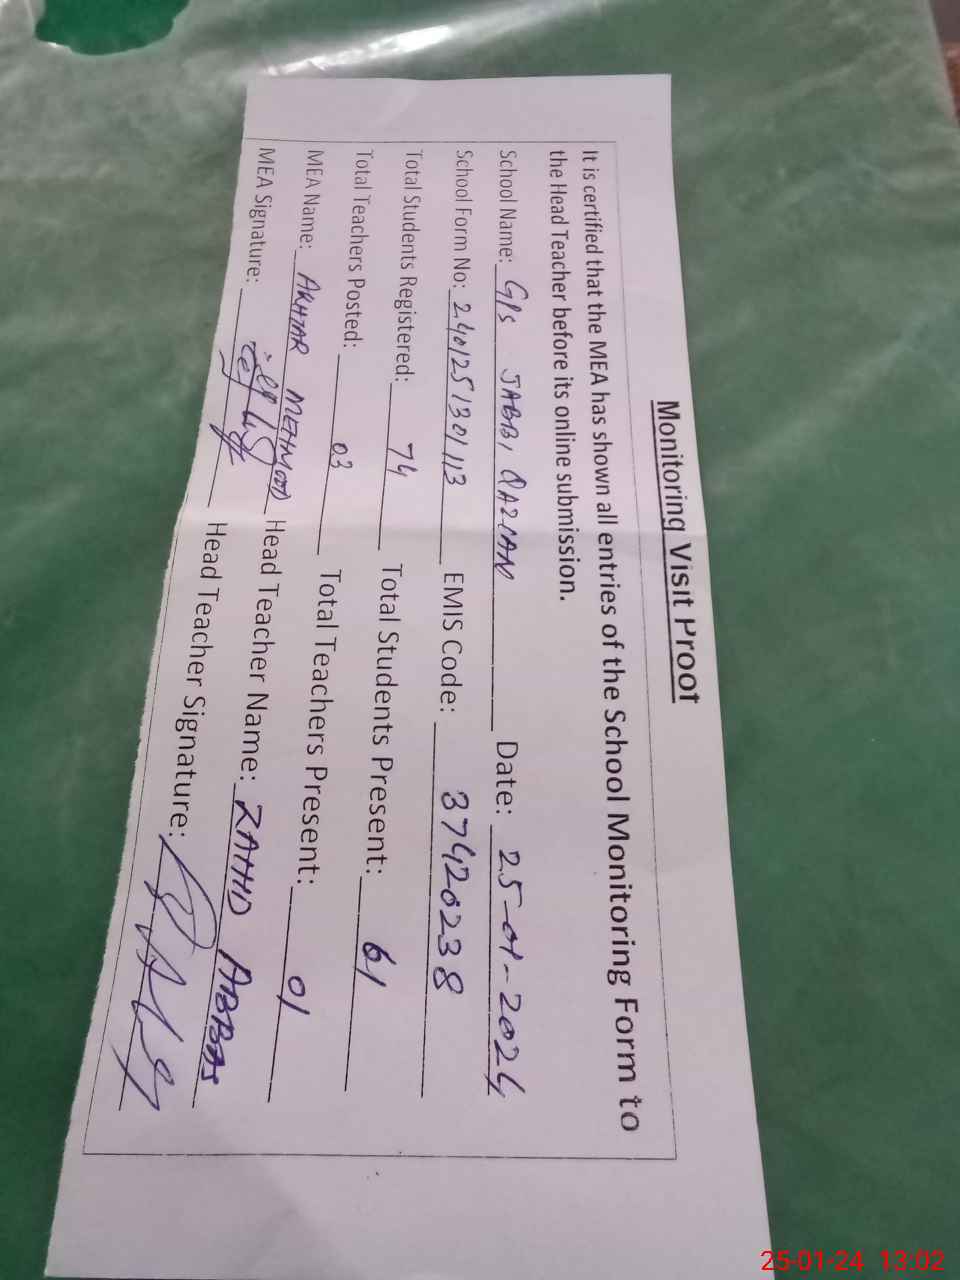 Monitoring Visit Proof
It is certified that the MEA has shown all entries of the School Monitoring Form to
the Head Teacher before its online submission.
School Name: GPS JABBI QAZIAN Date: 25-01-2024
School Form No: 2401251301113 EMIS Code: 37420238
Total Students Registered: 74 Total Students Present: 61
Total Teachers Posted: 03 Total Teachers Present: 01
MEA Name: AKHTAR MEHMOOD Head Teacher Name: ZAHID ABBAS
MEA Signature: Head Teacher Signature:
25-01-24 13:02